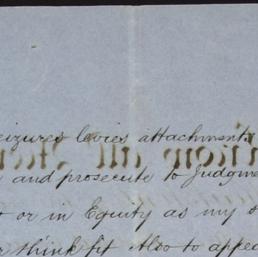 seizures levies attachments
and prosecute to Judgme
or in Equity as my s
think fit Also to appea